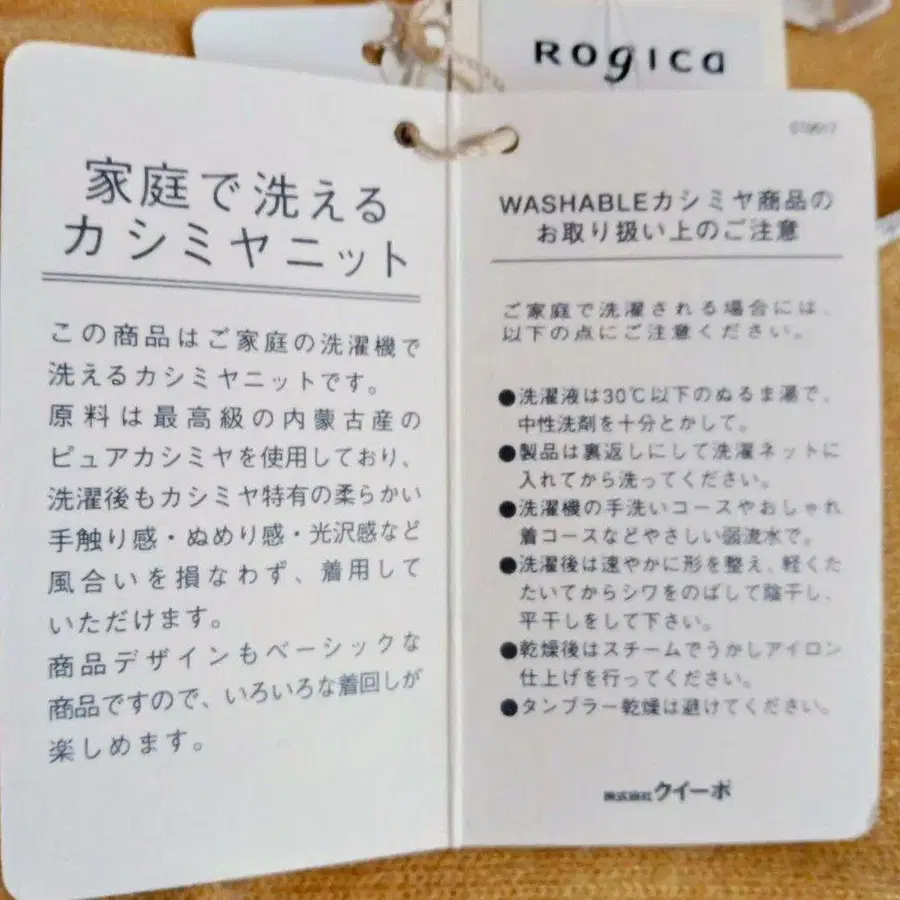 Rogica
家庭で洗える
カシミヤニット
この商品はご家庭の洗濯機で
洗えるカシミヤニットです。
原料は最高級の内蒙古産の
ピュアカシミヤを使用しており、
洗濯後もカシミヤ特有の柔らかい
手触り感・ぬめり感・光沢感など
風合いを損なわず、着用して
いただけます。
商品デザインもベーシックな
商品ですので、いろいろな着回しが
楽しめます。
WASHABLEカシミヤ商品の
お取り扱い上のご注意
ご家庭で洗濯される場合には、
以下の点にご注意ください。
●洗濯液は30℃以下のぬるま湯で、
中性洗剤を十分とかして。
●製品は裏返しにして洗濯ネットに
入れてから洗ってください。
●洗濯機の手洗いコースやおしゃれ
着コースなどやさしい弱流水で。
●洗濯後は速やかに形を整え、軽くた
たいてからシワをのばして陰干し、
平干しをして下さい。
●乾燥後はスチームでうかしアイロン
仕上げを行ってください。
●タンブラー乾燥は避けてください。
株式会社クイーポ